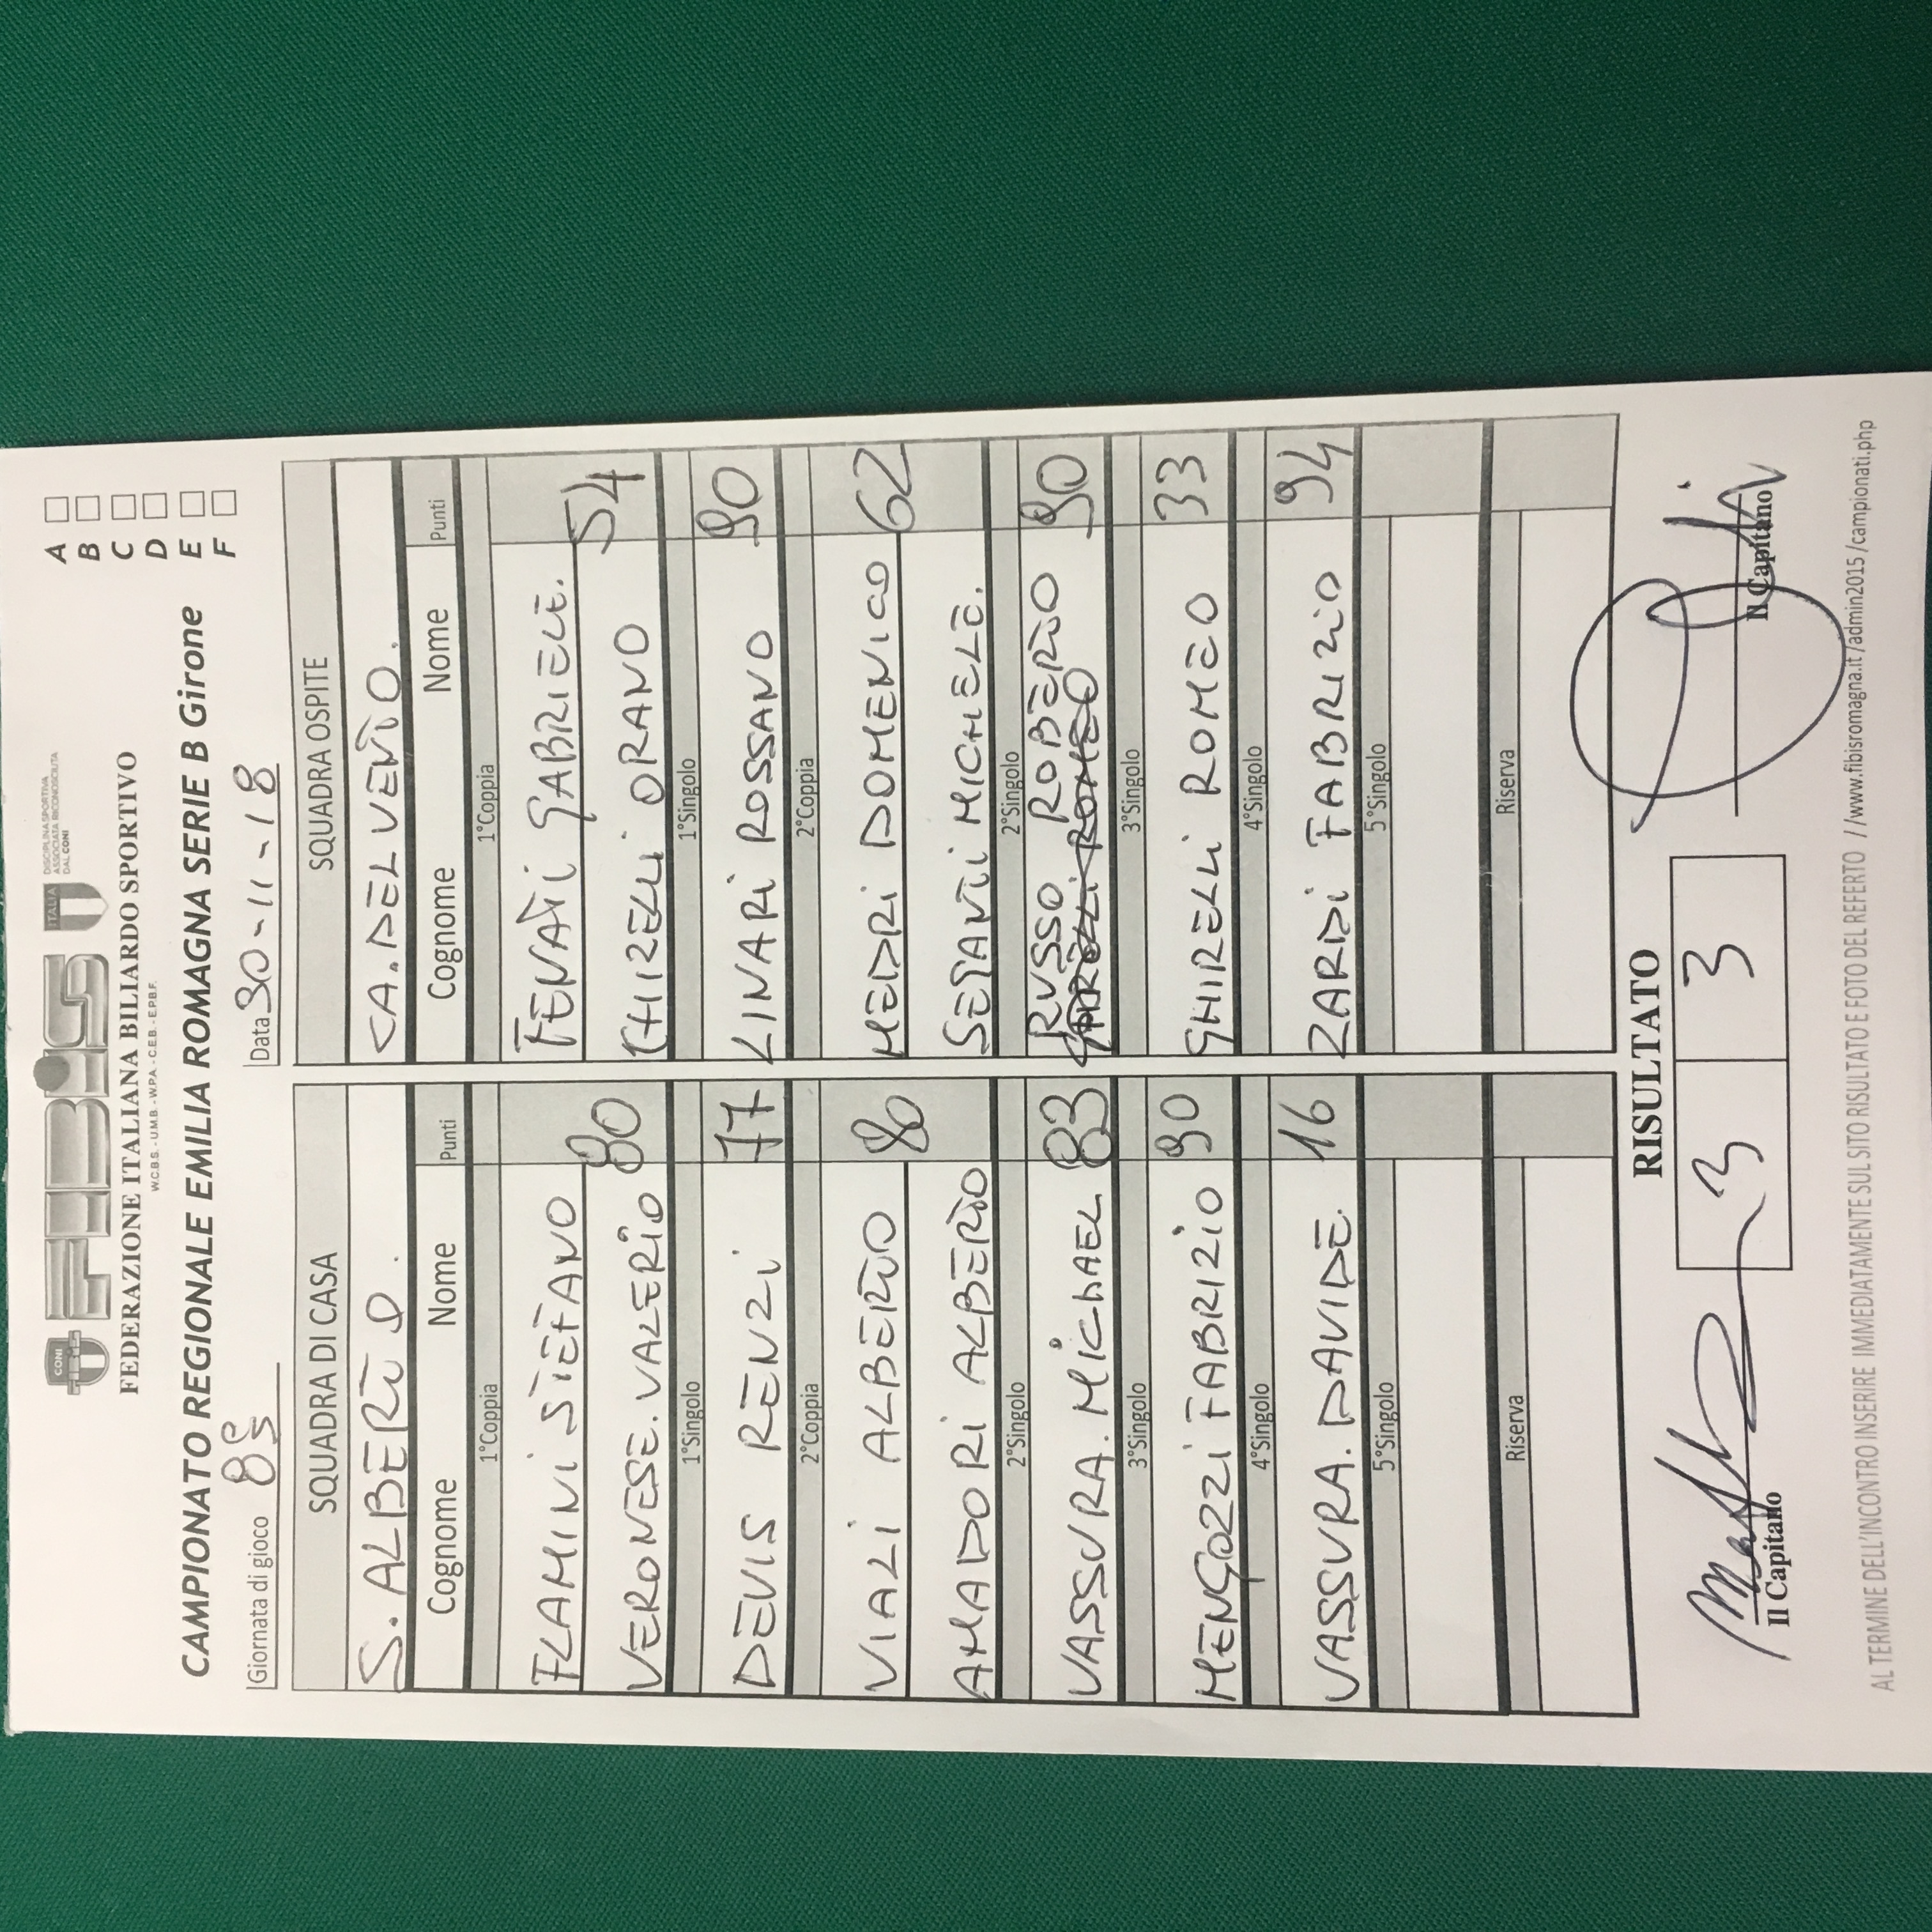 CONI
FIBiS
ITALIA
DISCIPLINA SPORTIVA
ASSOCIATA RICONOSCIUTA
DAL CONI
FEDERAZIONE ITALIANA BILIARDO SPORTIVO
W.C.B.S. - U.M.B. - W.P.A. - C.E.B. - E.P.B.F.
CAMPIONATO REGIONALE EMILIA ROMAGNA SERIE B Girone
A
B
C
D
E
F
Giornata di gioco 8ª Data 30-11-18
SQUADRA DI CASA SQUADRA OSPITE
S. ALBERTO. CA. DEL VENTO.
Cognome Nome Punti Cognome Nome Punti
1°Coppia 1°Coppia
FLAMINI STEFANO FENATI GABRIELE.
VERONESE. VALERIO 80 GHIRELLI ORANO 54
1°Singolo 1°Singolo
DEVIS RENZI 77 LINARI ROSSANO 90
2°Coppia 2°Coppia
VIALI ALBERTO 80 MEDRI DOMENICO 62
AMADORI ALBERTO MICHELE.
2°Singolo 2°Singolo
VASSURA. MICHAEL 83 RUSSO ROBERTO 90
3°Singolo 3°Singolo
MENGOZZI FABRIZIO 90 GHIRELLI ROMEO 33
4°Singolo 4°Singolo
VASSURA. DAVIDE. 16 ZARDI FABRIZIO 94
5°Singolo 5°Singolo
Riserva Riserva
RISULTATO
3 3
Il Capitano Il Capitano
AL TERMINE DELL'INCONTRO INSERIRE IMMEDIATAMENTE SUL SITO RISULTATO E FOTO DEL REFERTO //www.fibisromagna.it/admin2015/campionati.php